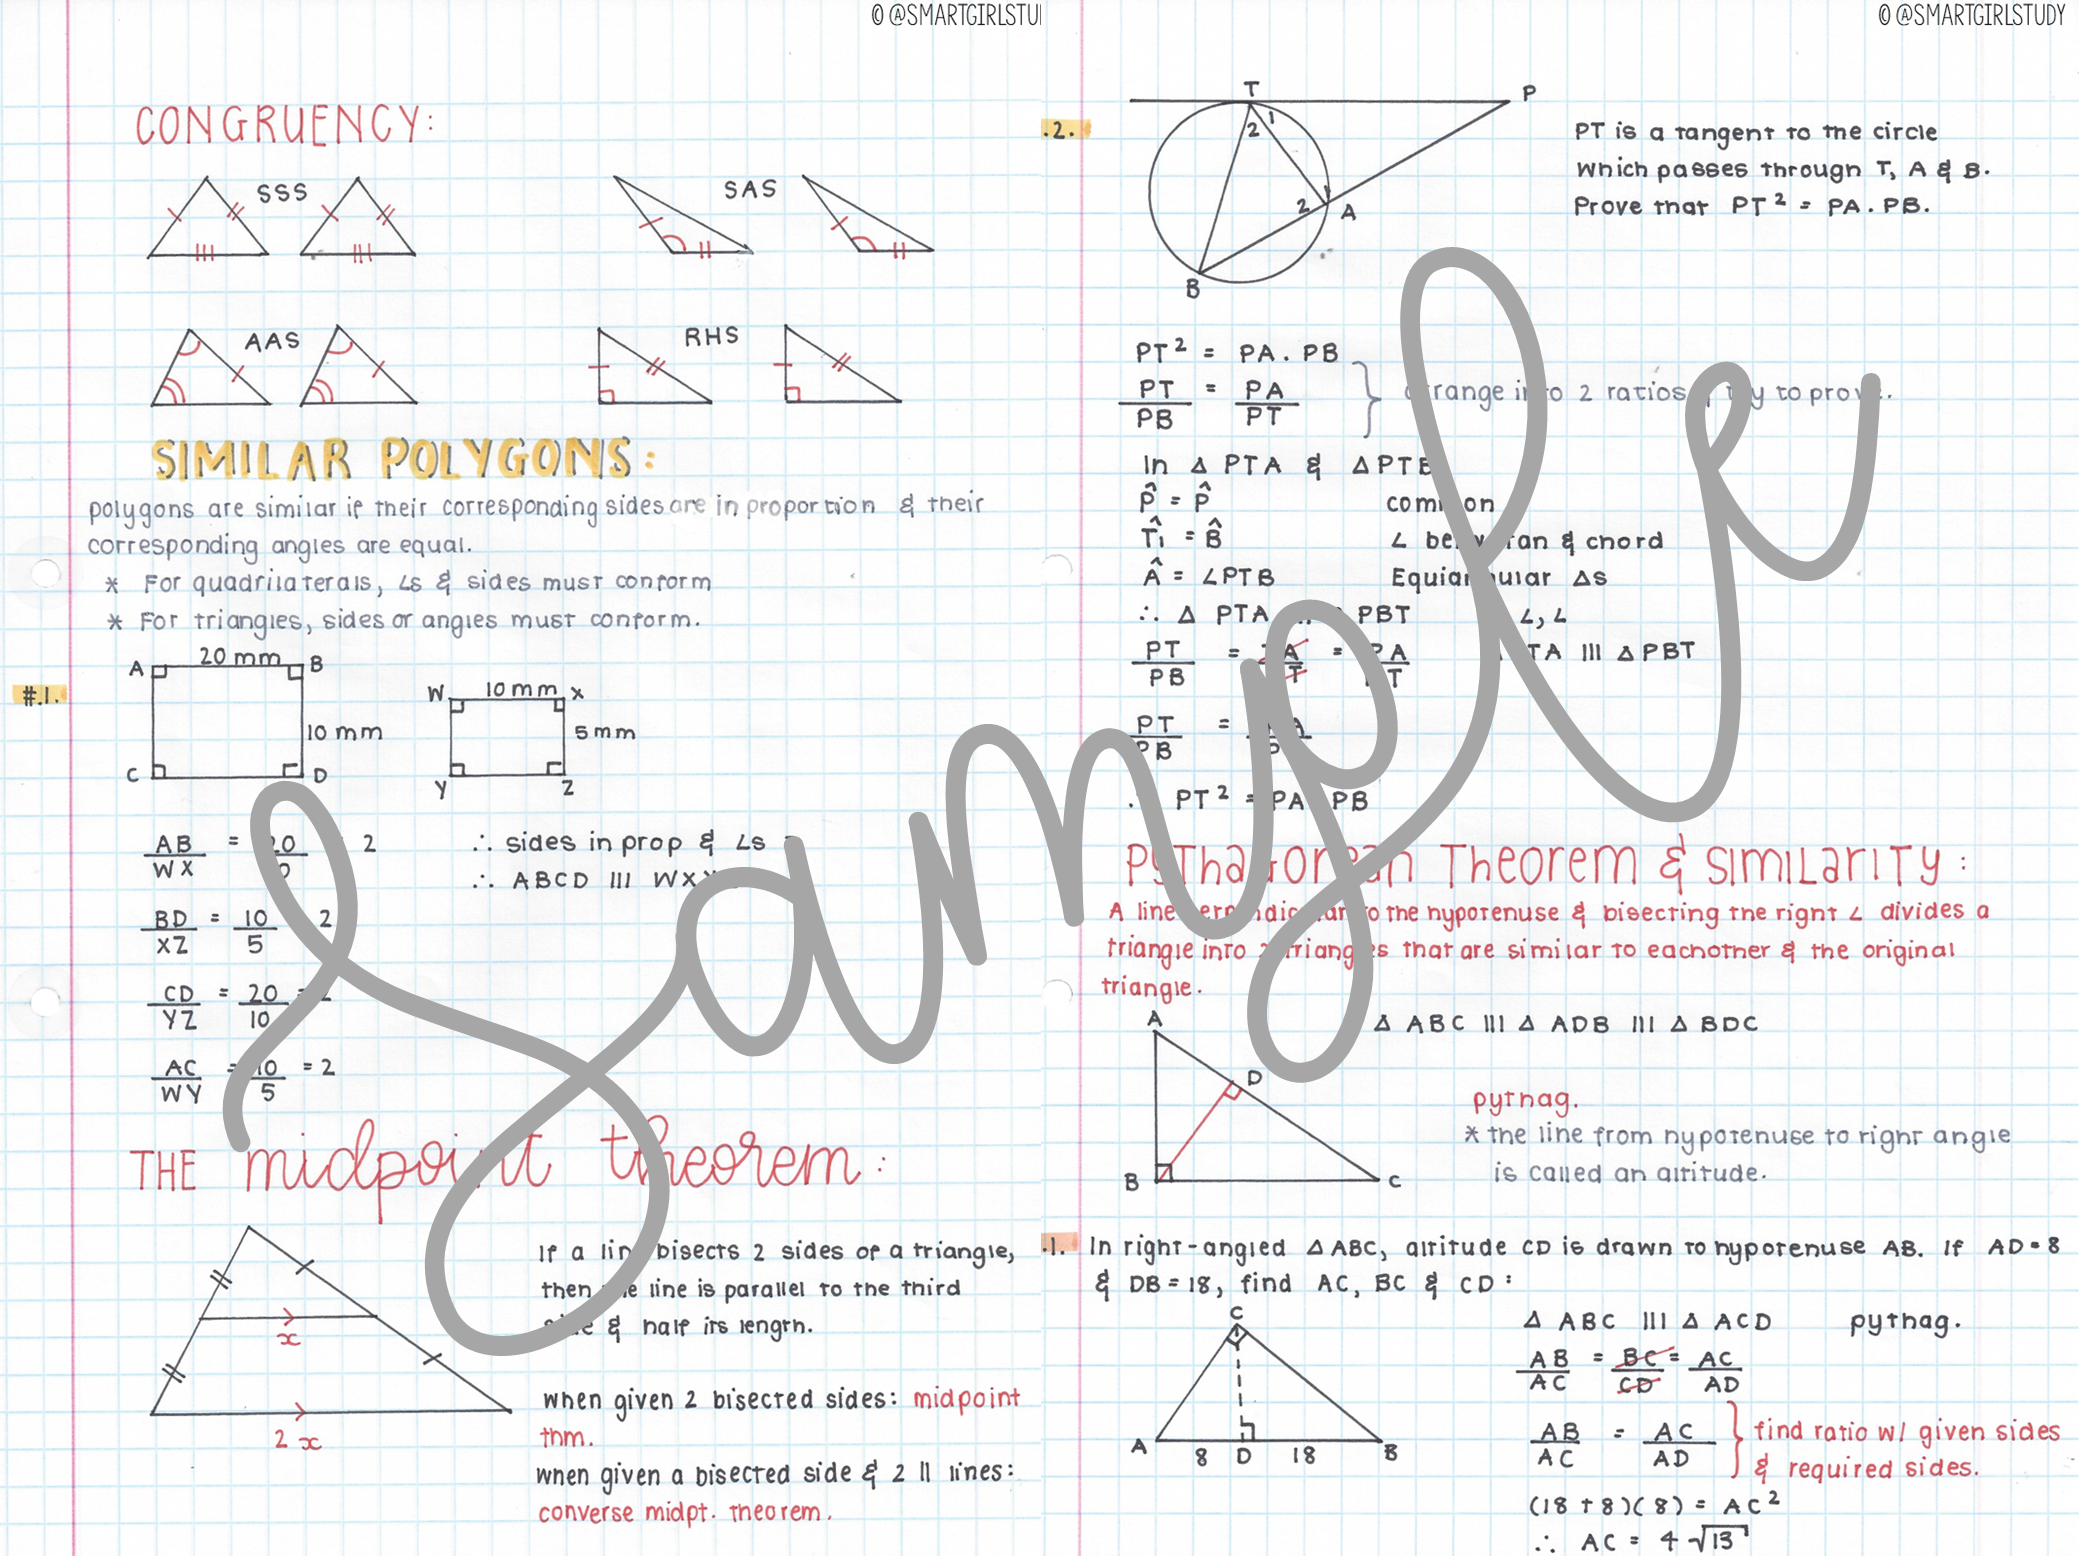 © @SMARTGIRLSTU
CONGRUENCY:
SSS
SAS
AAS
RHS
SIMILAR POLYGONS:
polygons are similar if their corresponding sides are in proportion & their
corresponding angles are equal.
* For quadrilaterals, ∠s & sides must conform
* For triangles, sides or angles must conform.
#.1.
A 20 mm B
10 mm
C D
W 10 mm X
5 mm
Y Z
AB/WX = 20/ 2
BD/XZ = 10/5 2
CD/YZ = 20/10 =
AC/WY = 10/5 = 2
∴ sides in prop & ∠s
∴ ABCD ||| WX
THE midpoint theorem:
x
2x
If a line bisects 2 sides of a triangle,
then the line is parallel to the third
side & half its length.
when given 2 bisected sides: midpoint
thm.
when given a bisected side & 2 || lines:
converse midpt. theorem.
© @SMARTGIRLSTUDY
.2.
T P
1
2
1
2 A
B
PT is a tangent to the circle
which passes through T, A & B.
Prove that PT² = PA.PB.
PT² = PA.PB
PT/PB = PA/PT
arrange into 2 ratios & try to prove.
In Δ PTA & Δ PTB
P̂ = P̂ common
T̂₁ = B̂ ∠ betw tan & chord
 = ∠PTB Equiangular Δs
∴ Δ PTA ||| PBT ∠,∠
PT/PB = A/T = PA/PT TA ||| Δ PBT
PT/PB = A/P
PT² = PA PB
Pythagorean Theorem & Similarity:
A line perpendicular to the hypotenuse & bisecting the right ∠ divides a
triangle into 2 triangles that are similar to eachother & the original
triangle.
Δ ABC ||| Δ ADB ||| Δ BDC
A
D
B C
pythag.
* the line from hypotenuse to right angle
is called an altitude.
.1. In right-angled Δ ABC, altitude CD is drawn to hypotenuse AB. If AD=8
& DB=18, find AC, BC & CD:
C
A 8 D 18 B
Δ ABC ||| Δ ACD pythag.
AB/AC = BC/CD = AC/AD
AB/AC = AC/AD
find ratio w/ given sides
& required sides.
(18+8)(8) = AC²
∴ AC = 4√13
Sample